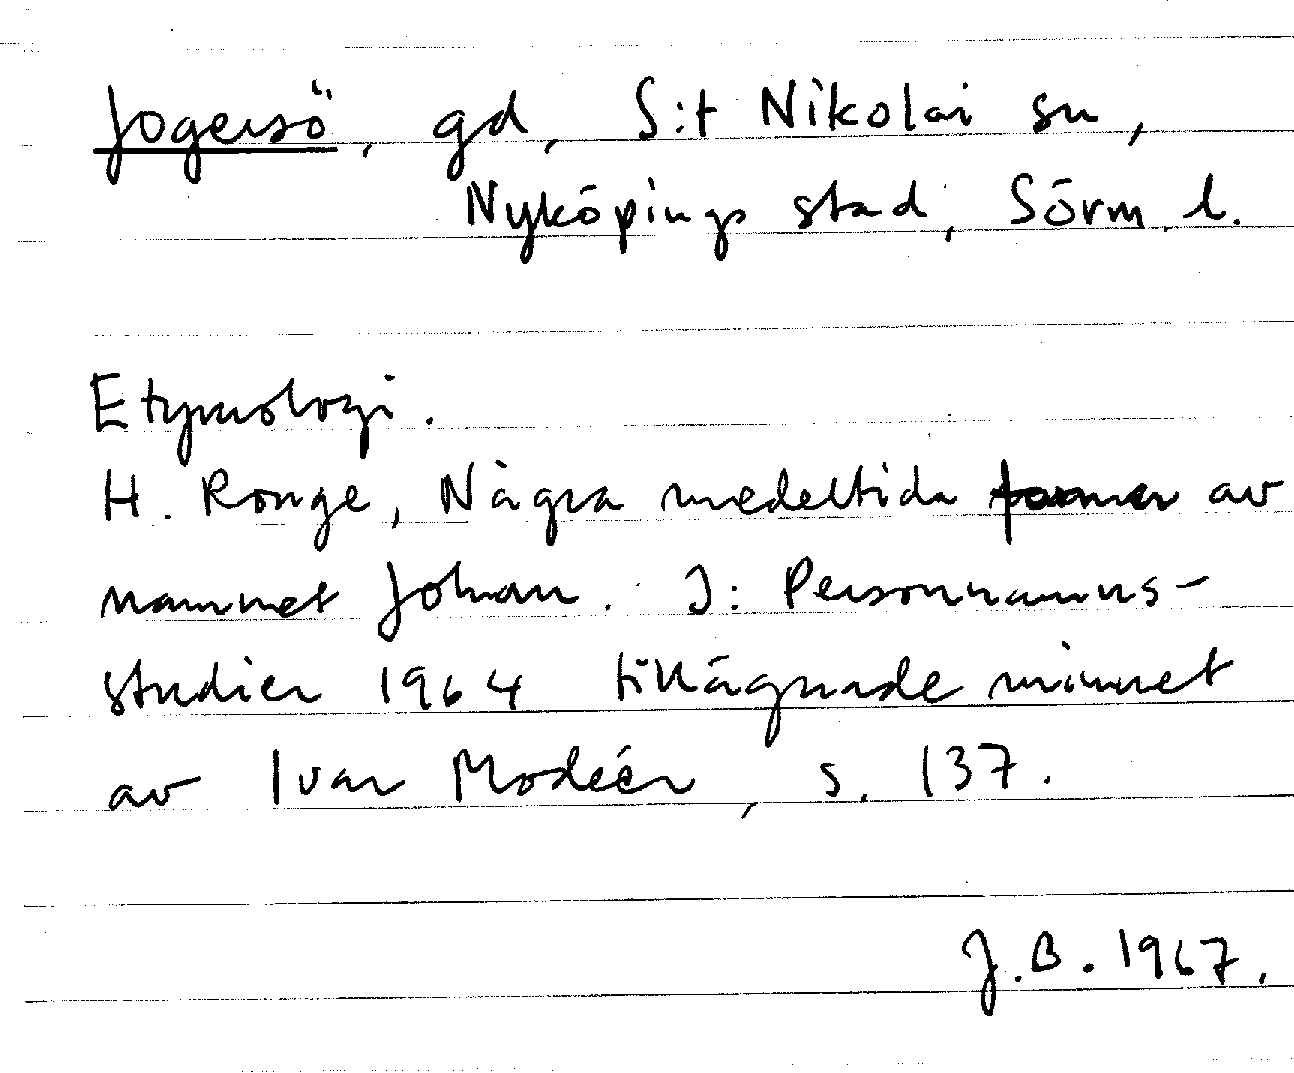 Jogersö, gd, S:t Nikolai sn,
Nyköpings stad, Sörm. l.
Etymologi.
H. Ronge, Några medeltida former av
namnet Johan. I: Personnamns-
studier 1964 tillägnade minnet
av Ivar Modéer, s. 137.
J.B. 1967.